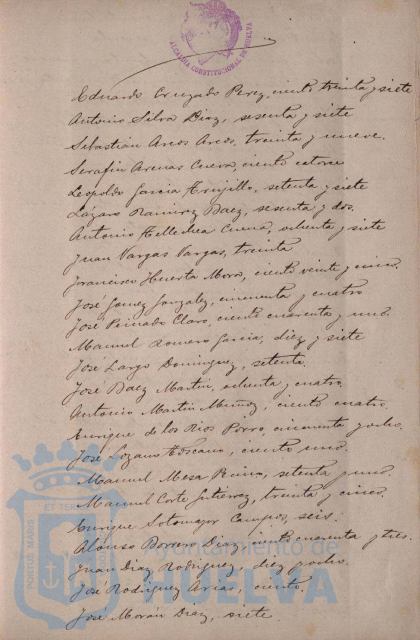 ALCALDIA CONSTITUCIONAL DE HUELVA
Eduardo Cruzado Perez, ciento treinta y siete
Antonio Silva Diaz, sesenta y siete
Sebastián Arcos Arcos, treinta y nueve.
Serafin Arenas Cueva, ciento catorce
Leopoldo Garcia Trujillo, setenta y siete
Lázaro Ramirez Baez, sesenta y dos.
Antonio Cuena, ochenta y siete
Juan Vargas Vargas, treinta
Francisco Huerta Mora, ciento veinte y cinco.
José Gomez Gonzalez, cincuenta y cuatro
José Peinado Claro, ciento cuarenta y uno.
Manuel Romero Garcia, diez y siete
José Largo Dominguez, setenta.
José Baez Martin, ochenta y cuatro.
Antonio Martin Muñoz, ciento cuatro.
Enrique de los Rios Porro, cincuenta y ocho.
José Lozano Toscano, ciento uno.
Manuel Mesa Reina, setenta y uno.
Manuel Corte Gutierrez, treinta y cinco.
Enrique Sotomayor Campos, seis.
Alonso Borrero Diaz, ciento cuarenta y tres.
Juan Diaz Rodriguez, diez y ocho.
José Rodriguez Arias, ciento.
José Morán Diaz, siete
PORTUS MARIS
ET TERR
Ayuntamiento de
HUELVA